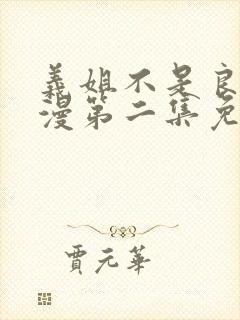 義姐不是良
漫第二集免
賈元華